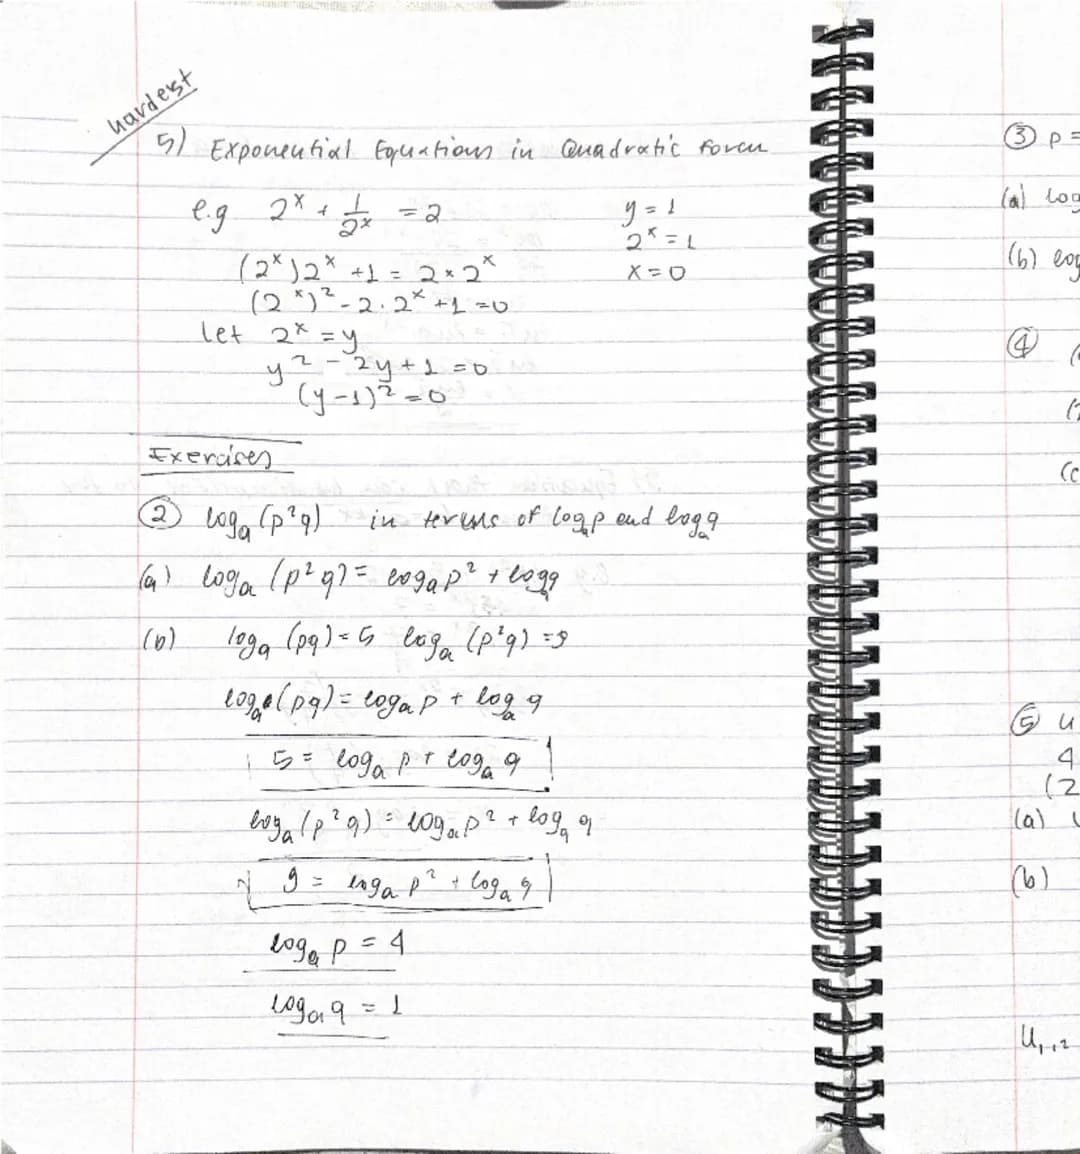 hardest
5) Exponential Equations in Quadratic Form
e.g 2^x + 1/2^x = 2
(2^x)2^x +1 = 2 × 2^x
(2^x)² - 2. 2^x +1 =0
let 2^x = y
y² - 2y + 1 = 0
(y-1)² = 0
y = 1
2^x = 1
x = 0
Exercises
② logₐ (p²q) in terms of logₐp and logₐq
(a) logₐ (p²q) = logₐp² + logₐq
(b) logₐ (pq) = 5 logₐ (p²q) = 9
logₐ(pq) = logₐ p + logₐ q
5 = logₐ p + logₐ q
logₐ(p²q) = logₐp² + logₐ q
9 = logₐ p² + logₐ q
logₐ p = 4
logₐ q = 1
③ p =
(a) log
(b) log
④
(c
⑤ u
4
(2
(a)
(b)